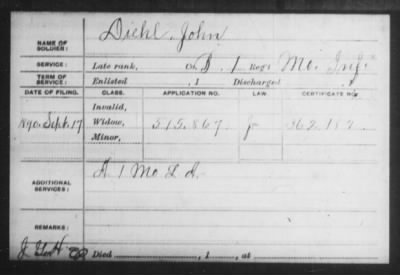 NAME OF SOLDIER: Diehl, John
SERVICE: Late rank, Co. I, 1 Reg't Mo. Inf.
TERM OF SERVICE: Enlisted , 1 Discharged , 1
DATE OF FILING. CLASS. APPLICATION NO. LAW. CERTIFICATE NO.
Invalid,
1890. Sept. 17 Widow, 515.867 362.182
Minor,
ADDITIONAL SERVICES: A 1 Mo L A.
REMARKS:
Died , 1 , at